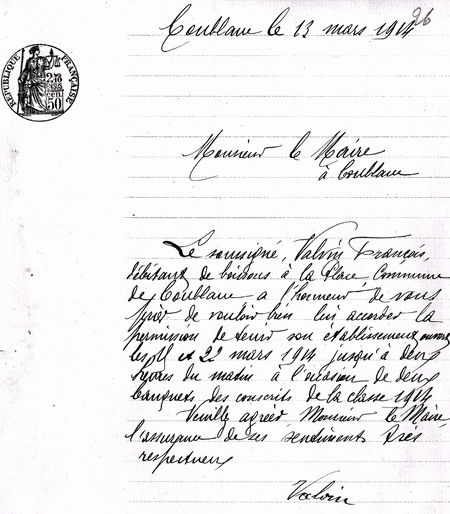 Coublanc le 13 mars 1914
26
RÉPUBLIQUE FRANÇAISE
50
Monsieur le Maire
à Coublanc
Le soussigné, Valvin François,
débitant de boissons à la Place, Commune
de Coublanc a l'honneur de vous
prier de vouloir bien lui accorder la
permission de tenir son établissement ouvert
les et 22 mars 1914 jusqu'à deux
heures du matin à l'occasion de deux
banquets des conscrits de la classe 1914
Veuillez agréer, Monsieur le Maire,
l'assurance de ses sentiments très
respectueux
Valvin